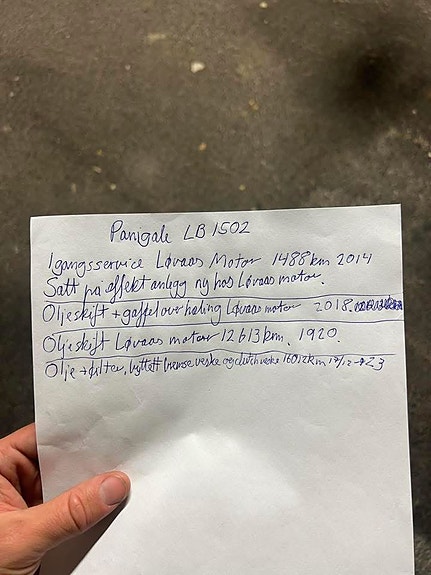 Panigale LB 1502
Igangsservice Løvaas Motor 1488km 2014
Satt på effekt anlegg ny hos Løvaas motor.
Oljeskift + gaffeloverhaling Løvaas motor 2018
Oljeskift Løvaas motor 12613km. 1920.
Olje + filter, byttett bremse veske og clutch veske 16012km 17/12-23